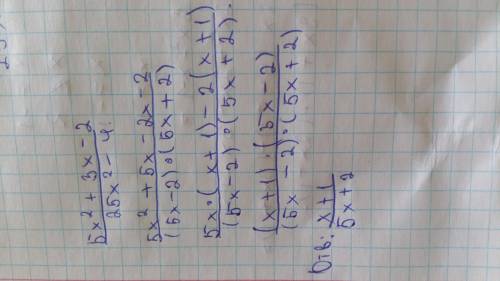 5x² + 3x - 2
25x² - 4
5x² + 5x - 2x - 2
(5x-2)∘(5x+2)
5x∘(x+1) - 2(x+1)
(5x-2)∘(5x+2)
(x+1)·(5x-2)
(5x-2)∘(5x+2)
Отв: x+1
5x+2